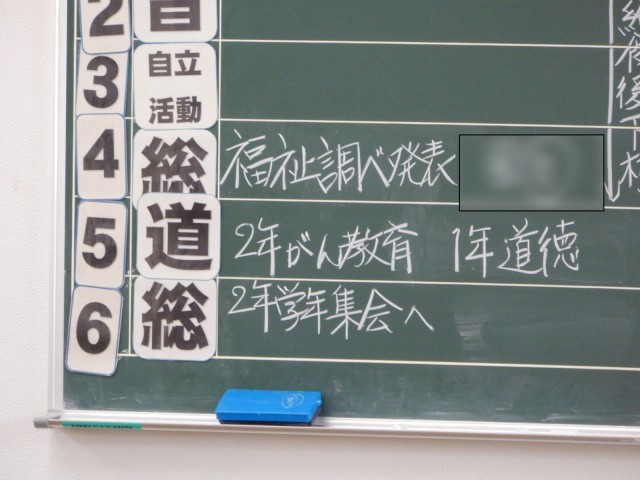 2
3 自立活動
4 総 福祉調べ発表
5 道 2年がん教育 1年道徳
6 総 2年学年集会へ